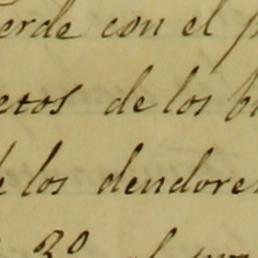 erde con el p
etos de los b
e los deudores
3º el